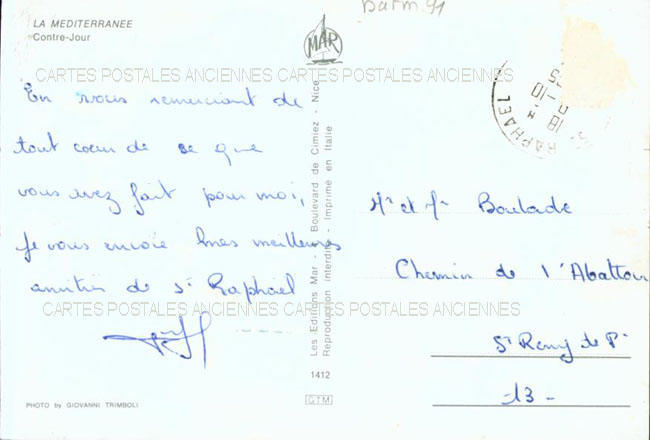 Barm 91
LA MEDITERRANEE
Contre-Jour
MAR
CARTES POSTALES ANCIENNES CARTES POSTALES ANCIENNES
En vous remerciant de
tout coeur de ce que
vous avez fait pour moi,
je vous envoie mes meilleures
amitiés de St Raphaël
CARTES POSTALES ANCIENNES CARTES POSTALES ANCIENNES
PHOTO by GIOVANNI TRIMBOLI
Les Editions Mar - Boulevard de Cimiez - Nice
Reproduction interdite - Imprimé en Italie
1412
GTM
18 H
-10
RAPHAEL
Mr et Me Boulade
Chemin de l'Abattoir
St Remy de P.
-13-